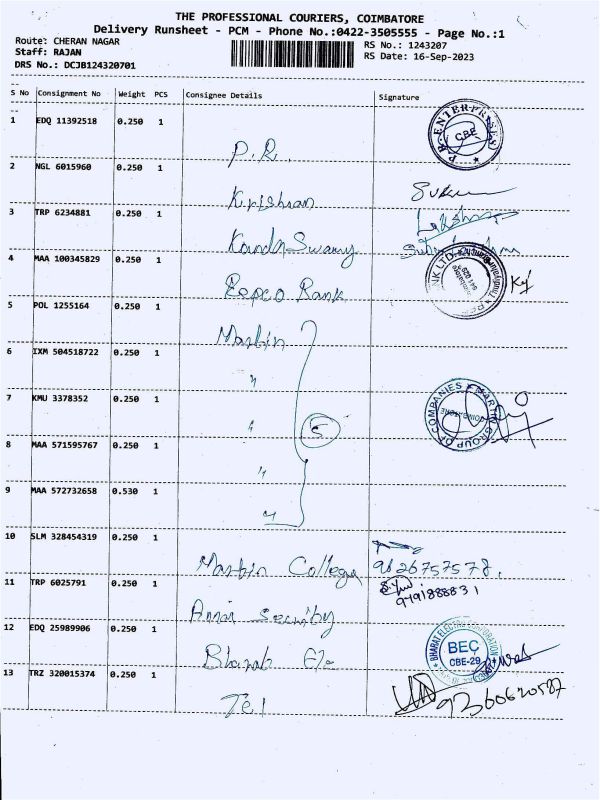 THE PROFESSIONAL COURIERS, COIMBATORE
Delivery Runsheet - PCM - Phone No.:0422-3505555 - Page No.:1
Route: CHERAN NAGAR
RS No.: 1243207
Staff: RAJAN
RS Date: 16-Sep-2023
DRS No.: DCJB124320701
S No Consignment No Weight PCS Consignee Details Signature
1 EDQ 11392518 0.250 1
P.R.
P.R. ENTERPRISES CBE
2 NGL 6015960 0.250 1
Krishnan
3 TRP 6234881 0.250 1
KandaSwamy
4 MAA 100345829 0.250 1
Repco Bank
5 POL 1255164 0.250 1
Martin
6 IXM 504518722 0.250 1
"
7 KMU 3378352 0.250 1
"
5
MARTIN GROUP OF COMPANIES COIMBATORE
8 MAA 571595767 0.250 1
"
9 MAA 572732658 0.530 1
"
10 SLM 328454319 0.250 1
Martin College 9626757578.
11 TRP 6025791 0.250 1
9791888831
Annai Security
12 EDQ 25989906 0.250 1
Bharat Ele
BHARAT ELECTRO CORPORATION
BEC
CBE-29
13 TRZ 320015374 0.250 1
Tel
9360620587